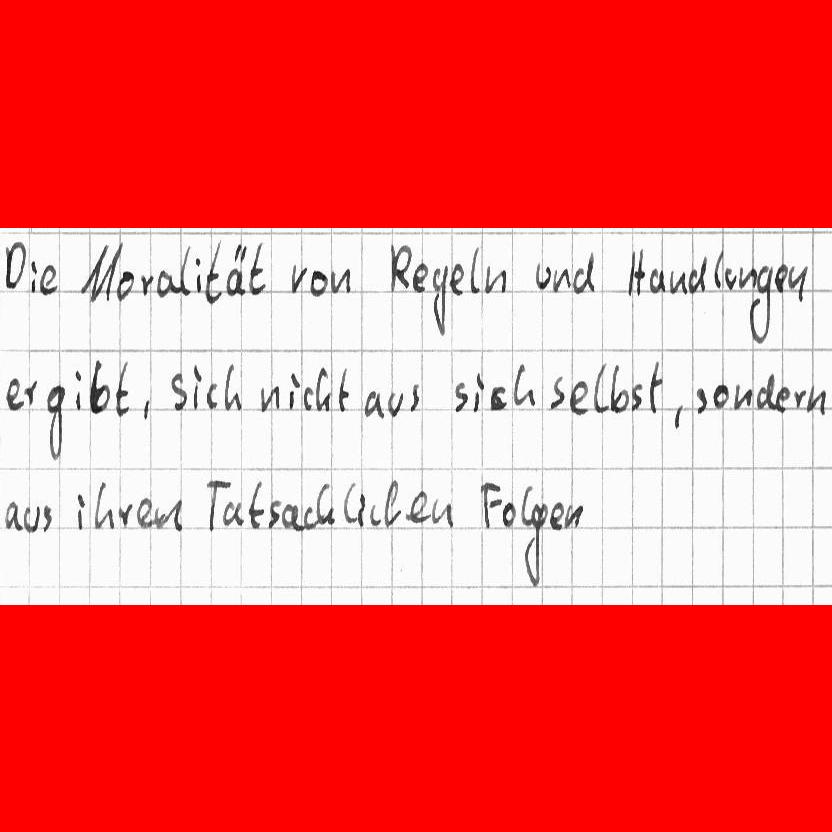 Die Moralität von Regeln und Handlungen
ergibt, sich nicht aus sich selbst, sondern
aus ihren Tatsachlichen Folgen